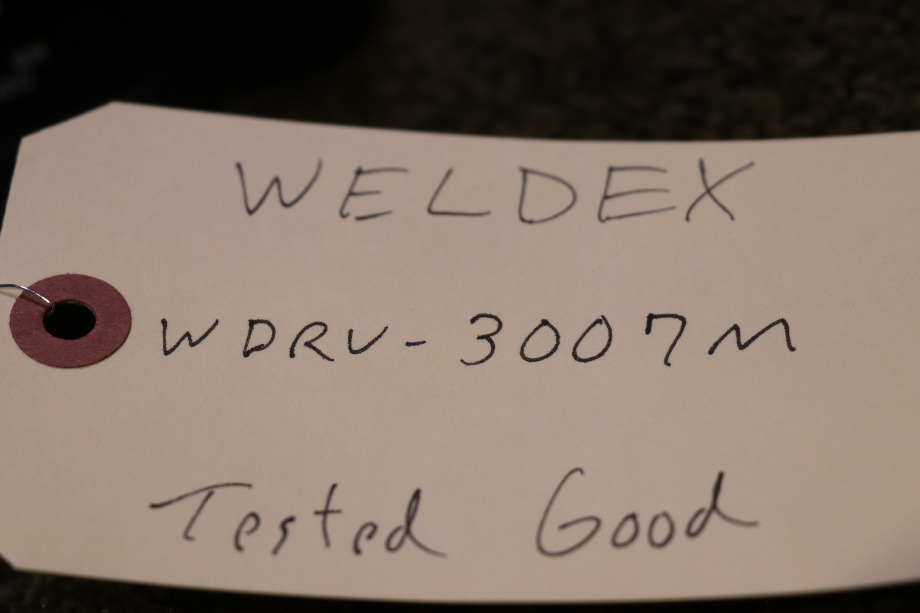 WELDEX
WDRV-3007M
Tested Good